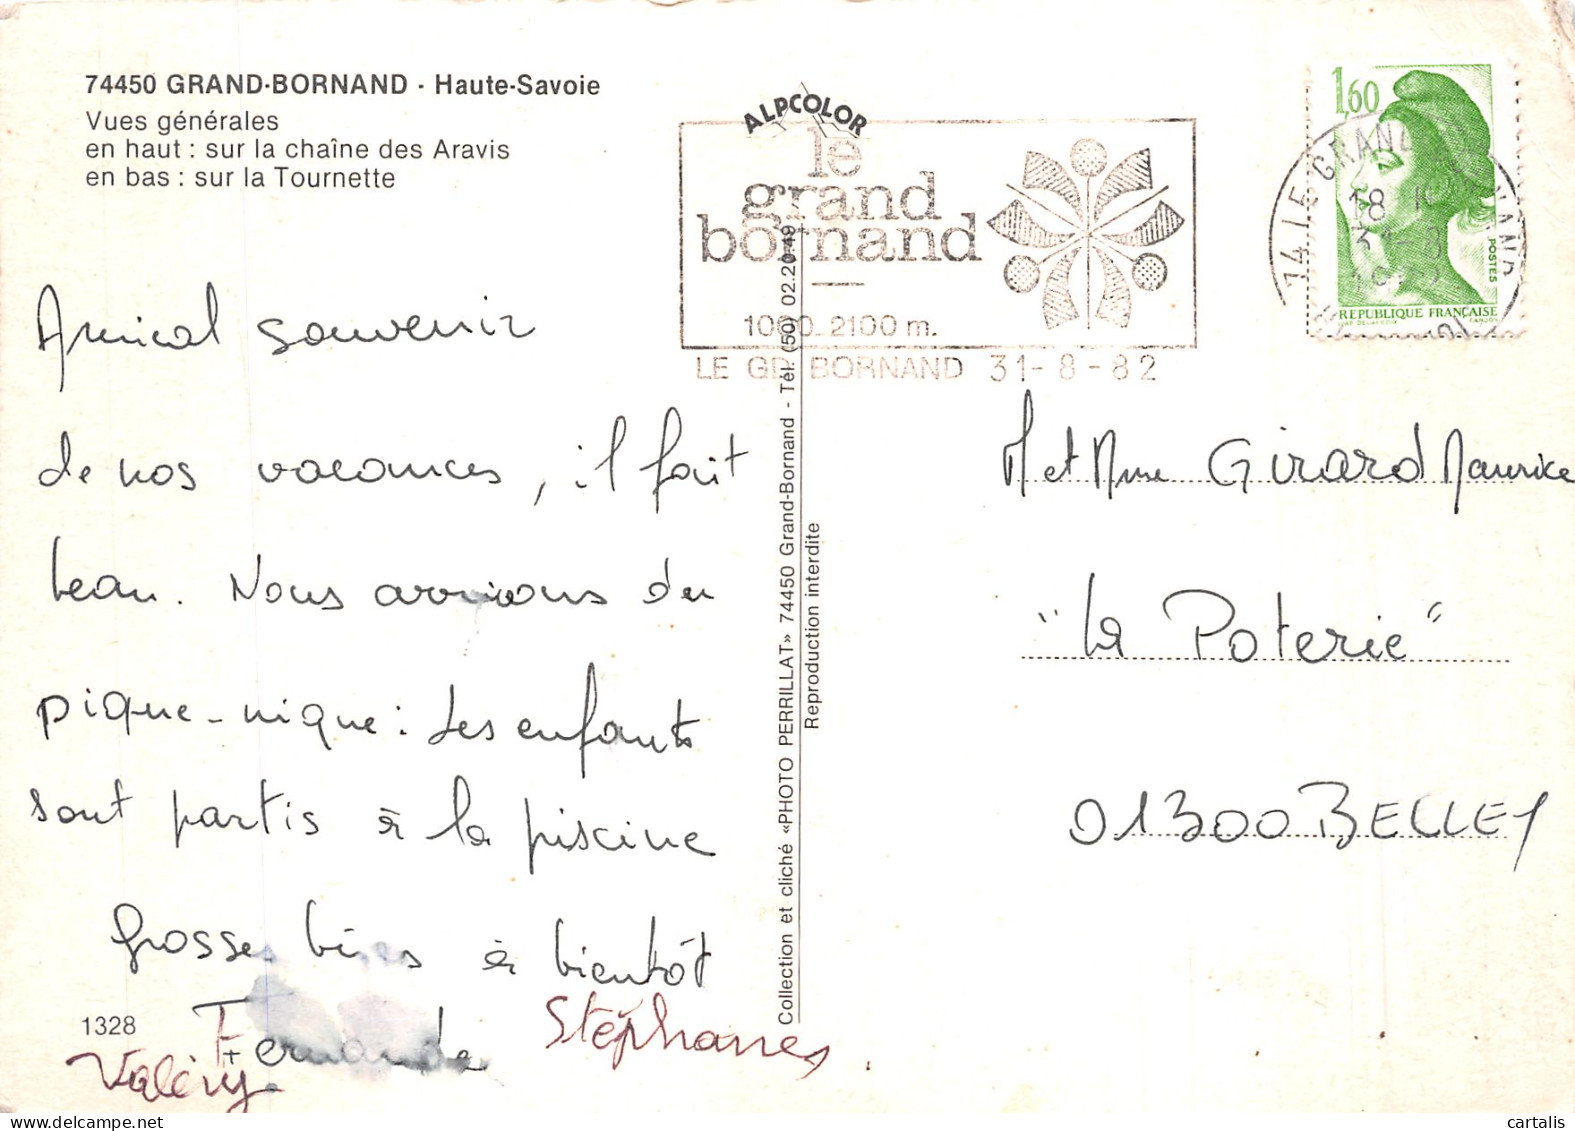 74450 GRAND-BORNAND - Haute-Savoie
Vues générales
en haut : sur la chaîne des Aravis
en bas : sur la Tournette
ALPCOLOR
le
grand
bornand
1000 2100 m.
LE GD BORNAND 31-8-82
1,60
POSTES
REPUBLIQUE FRANÇAISE
74 LE GRAND BORNAND
18 H
31-8
Amical souvenir
de nos vacances, il fait
beau. Nous arrivons du
pique-nique : Les enfants
sont partis à la piscine
Grosses bises à bientôt
Fernande
Stéphanes
Valéry
1328
Collection et cliché «PHOTO PERRILLAT» 74450 Grand-Bornand - Tél. (50) 02.20.49
Reproduction interdite
M et Mme Girard Maurice
"La Poterie"
01300 BELLEY
cartalis
delcampe.net